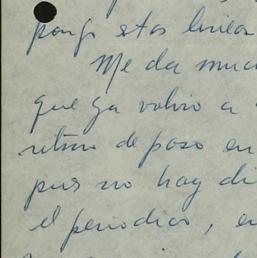 pongo estas lineas
Me da muc
que ya volvio a
ritmo de paso en
pues no hay di
el periodico, en